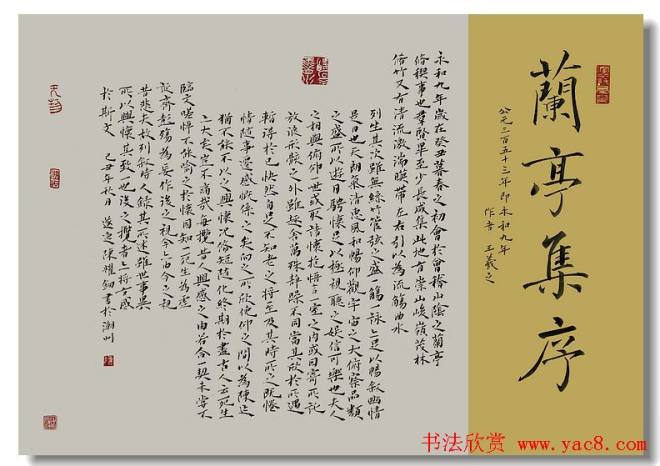 蘭亭集序
公元三百五十三年即永和九年
作者 王羲之
永和九年歲在癸丑暮春之初會於會稽山陰之蘭亭
脩禊事也群賢畢至少長咸集此地有崇山峻嶺茂林
脩竹又有清流激湍暎帶左右引以為流觴曲水
列坐其次雖無絲竹管弦之盛一觴一詠亦足以暢敘幽情
是日也天朗氣清惠風和暢仰觀宇宙之大俯察品類
之盛所以遊目騁懷足以極視聽之娛信可樂也夫人
之相與俯仰一世或取諸懷抱悟言一室之內或因寄所託
放浪形骸之外雖趣舍萬殊靜躁不同當其欣於所遇
暫得於己快然自足不知老之將至及其時所之既惓
情隨事遷感慨係之矣向之所欣俛仰之間以為陳迹
猶不能不以之興懷況脩短隨化終期於盡古人云死生
亦大矣豈不痛哉每攬昔人興感之由若合一契未嘗不
臨文嗟悼不能喻之於懷固知一死生為虛
誕齊彭殤為妄作後之視今亦由今之視
昔悲夫故列敘時人錄其所述雖世事異
所以興懷其致一也後之攬者亦將有感
於斯文 己丑年秋月 陳耀 書於潮州
书法欣赏 www.yac8.com